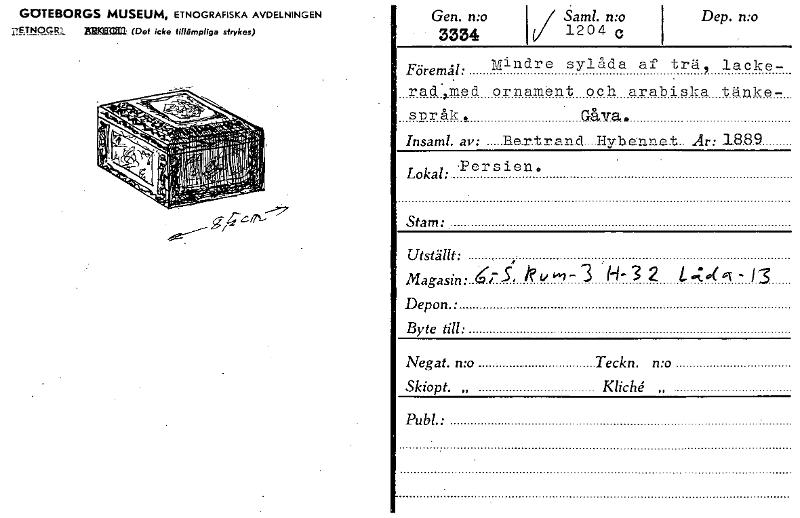 GÖTEBORGS MUSEUM, ETNOGRAFISKA AVDELNINGEN
ETNOGR. ARKEOL. (Det icke tillämpliga strykes)
8,5 cm
Gen. n:o Saml. n:o Dep. n:o
3334 1204 c
Föremål: Mindre sylåda af trä, lacke-
rad, med ornament och arabiska tänke-
språk. Gåva.
Insaml. av: Bertrand Hybennet År: 1889
Lokal: Persien.
Stam:
Utställt:
Magasin: G:S. Rum-3 H-32 Låda-13
Depon.:
Byte till:
Negat. n:o Teckn. n:o
Skiopt. „ Kliché „
Publ.: